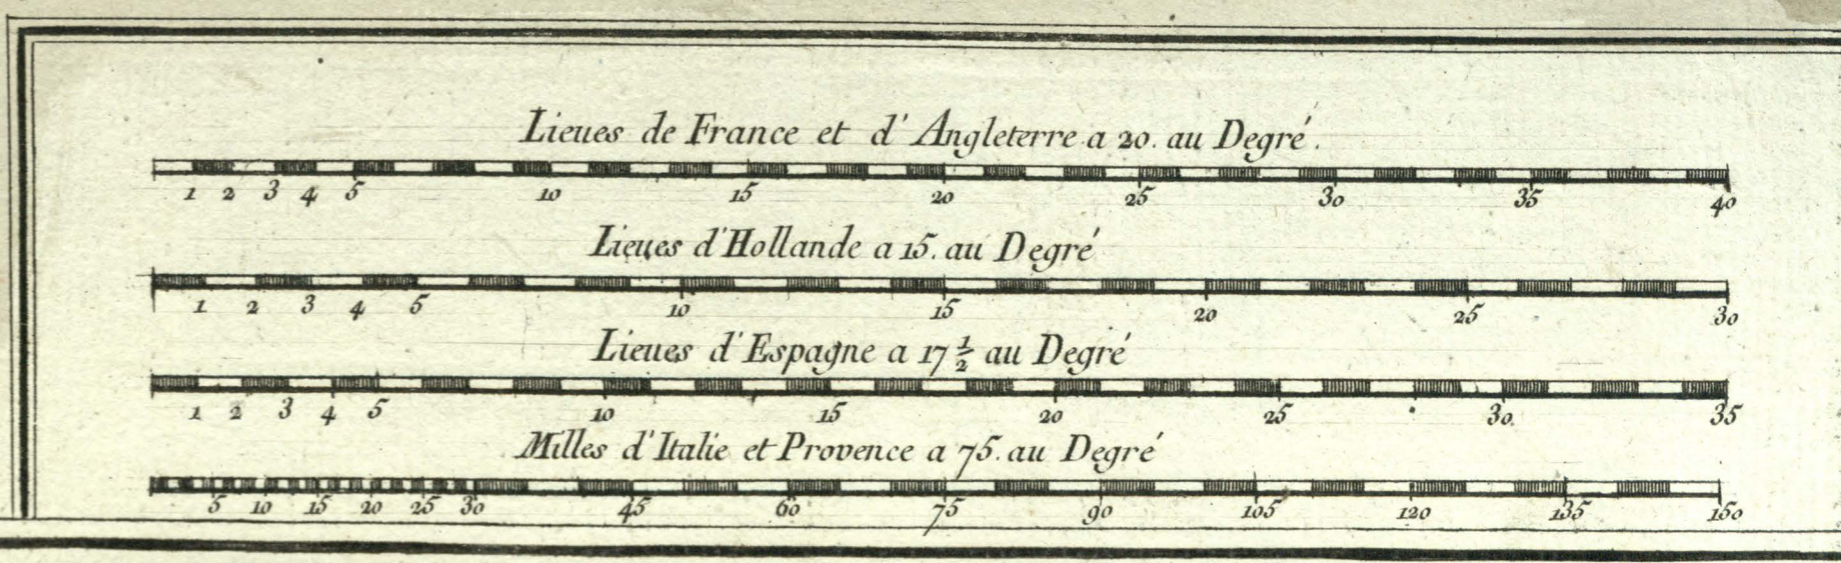 Lieues de France et d'Angleterre a 20. au Degré.
1 2 3 4 5 10 15 20 25 30 35 40
Lieues d'Hollande a 15. au Degré
1 2 3 4 5 10 15 20 25 30
Lieues d'Espagne a 17 1/2 au Degré
1 2 3 4 5 10 15 20 25 30 35
Milles d'Italie et Provence a 75. au Degré
5 10 15 20 25 30 45 60 75 90 105 120 135 150